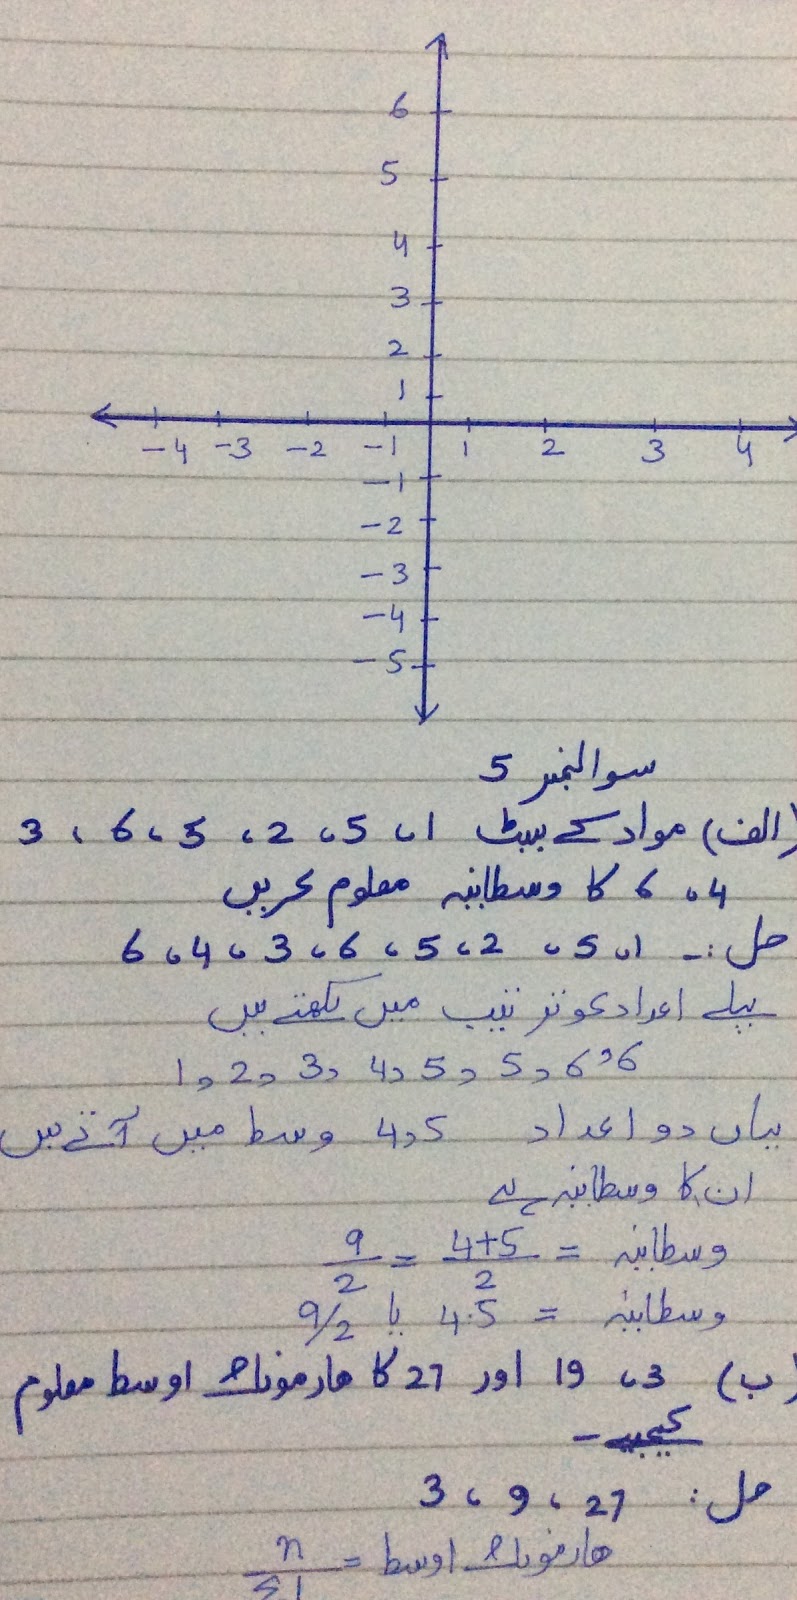 6
5
4
3
2
1
-4 -3 -2 -1 1 2 3 4
-1
-2
-3
-4
-5
سوالنمبر 5
(الف) مواد کے سیٹ 1، 5، 2، 5، 6، 3
4، 6 کا وسطانیہ معلوم کریں
حل:۔ 1، 5، 2، 5، 6، 3، 4، 6
پہلے اعداد کو ترتیب میں لکھتے ہیں
1, 2, 3, 4, 5, 5, 6, 6
یہاں دو اعداد 4,5 وسط میں آتے ہیں
ان کا وسطانیہ ہے
وسطانیہ = 4+5/2 = 9/2
وسطانیہ = 4.5 یا 9/2
(ب) 3، 19 اور 27 کا ھارمونک اوسط معلوم
کیجیے۔
حل: 3، 9، 27
ھارمونک اوسط = n/Σ1